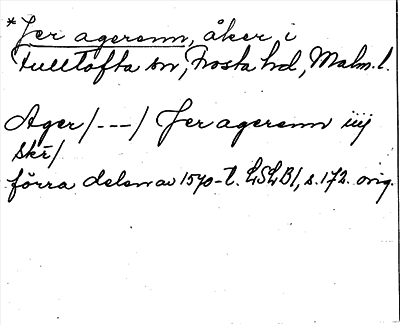 *Jer agerenn, åker, i
Fulltofta sn, Frosta hd, Malm. l.
Ager/---/ Jer agerenn iiij
skr/
förra delen av 1570-t. LSLB1, s. 172. orig.